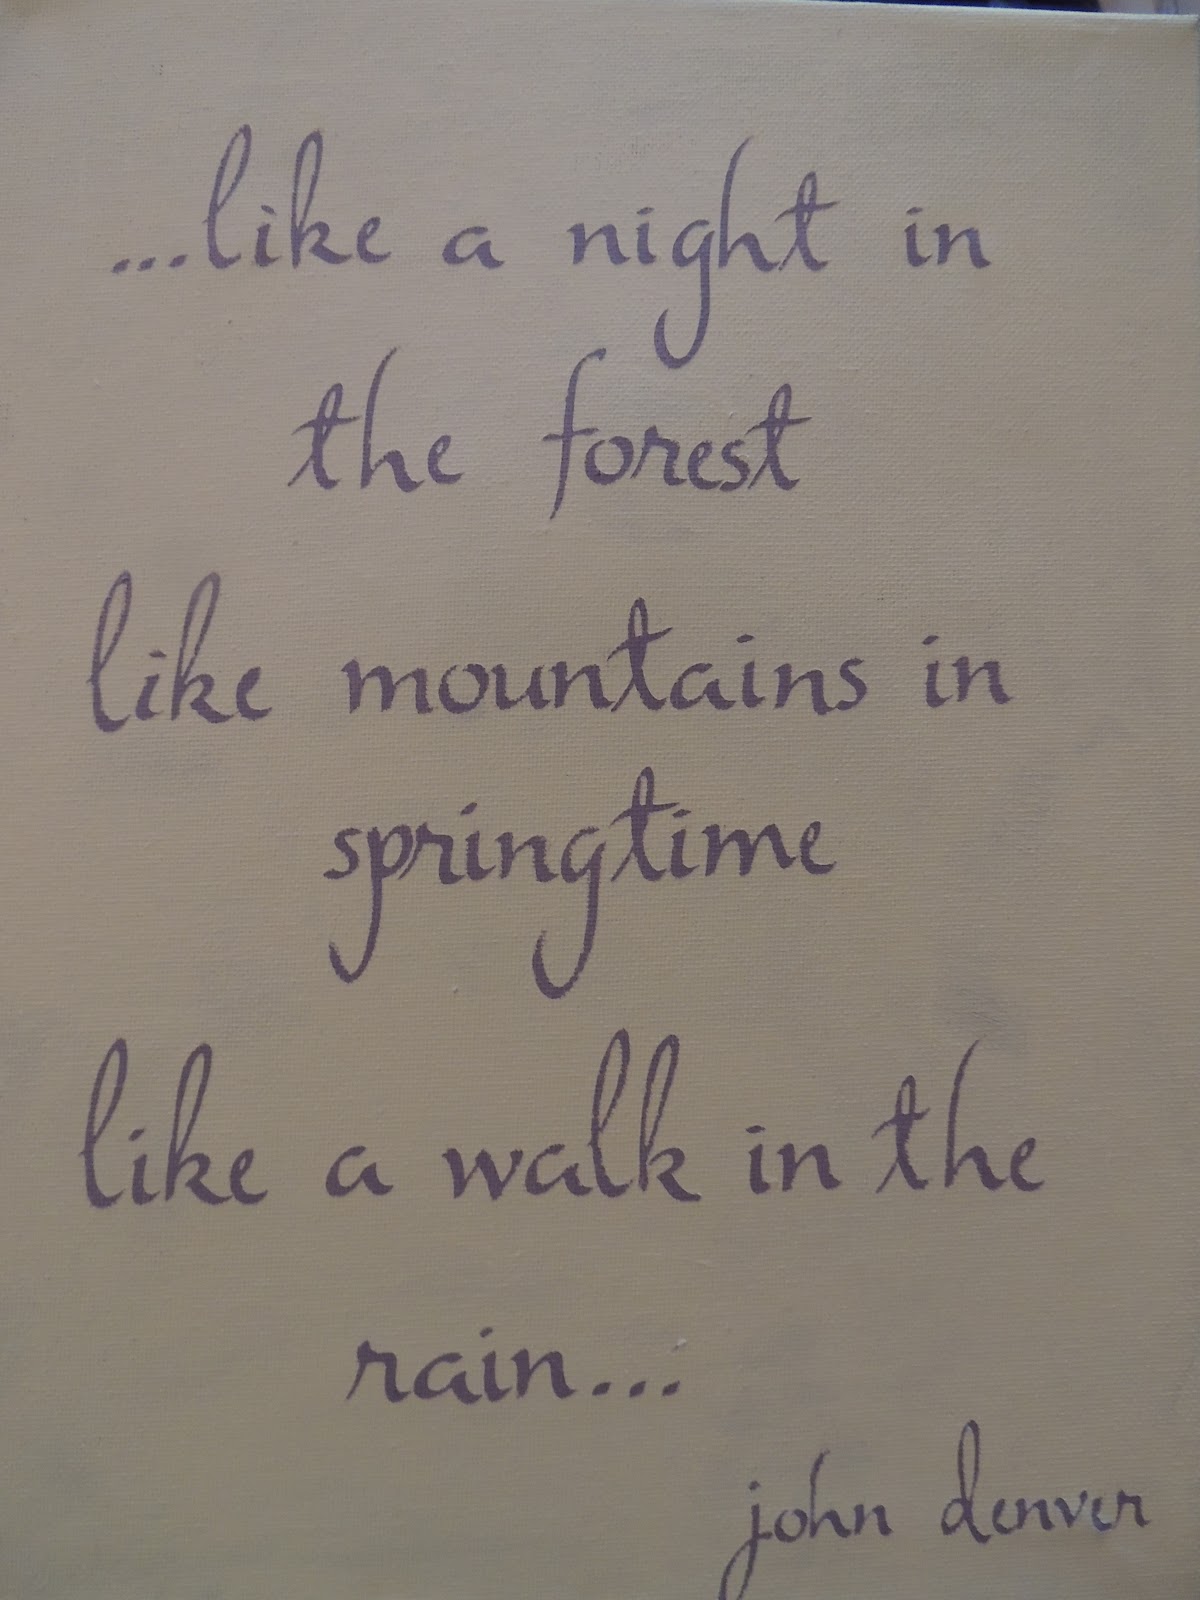 ...like a night in
the forest
like mountains in
springtime
like a walk in the
rain...
john denver